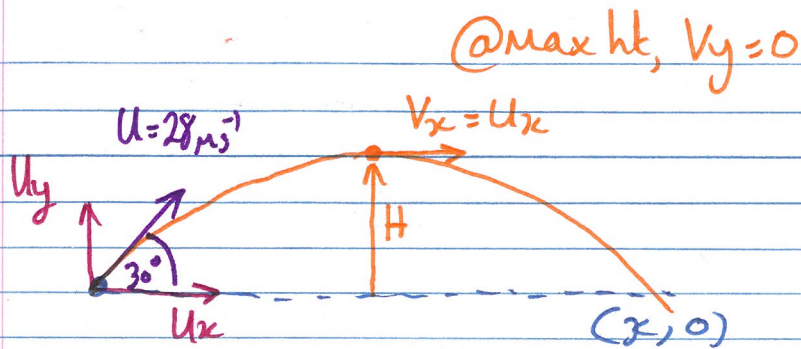 @Max ht, Vy=0
U=28ms⁻¹
Vx=Ux
Uy
H
30°
Ux
(x,0)